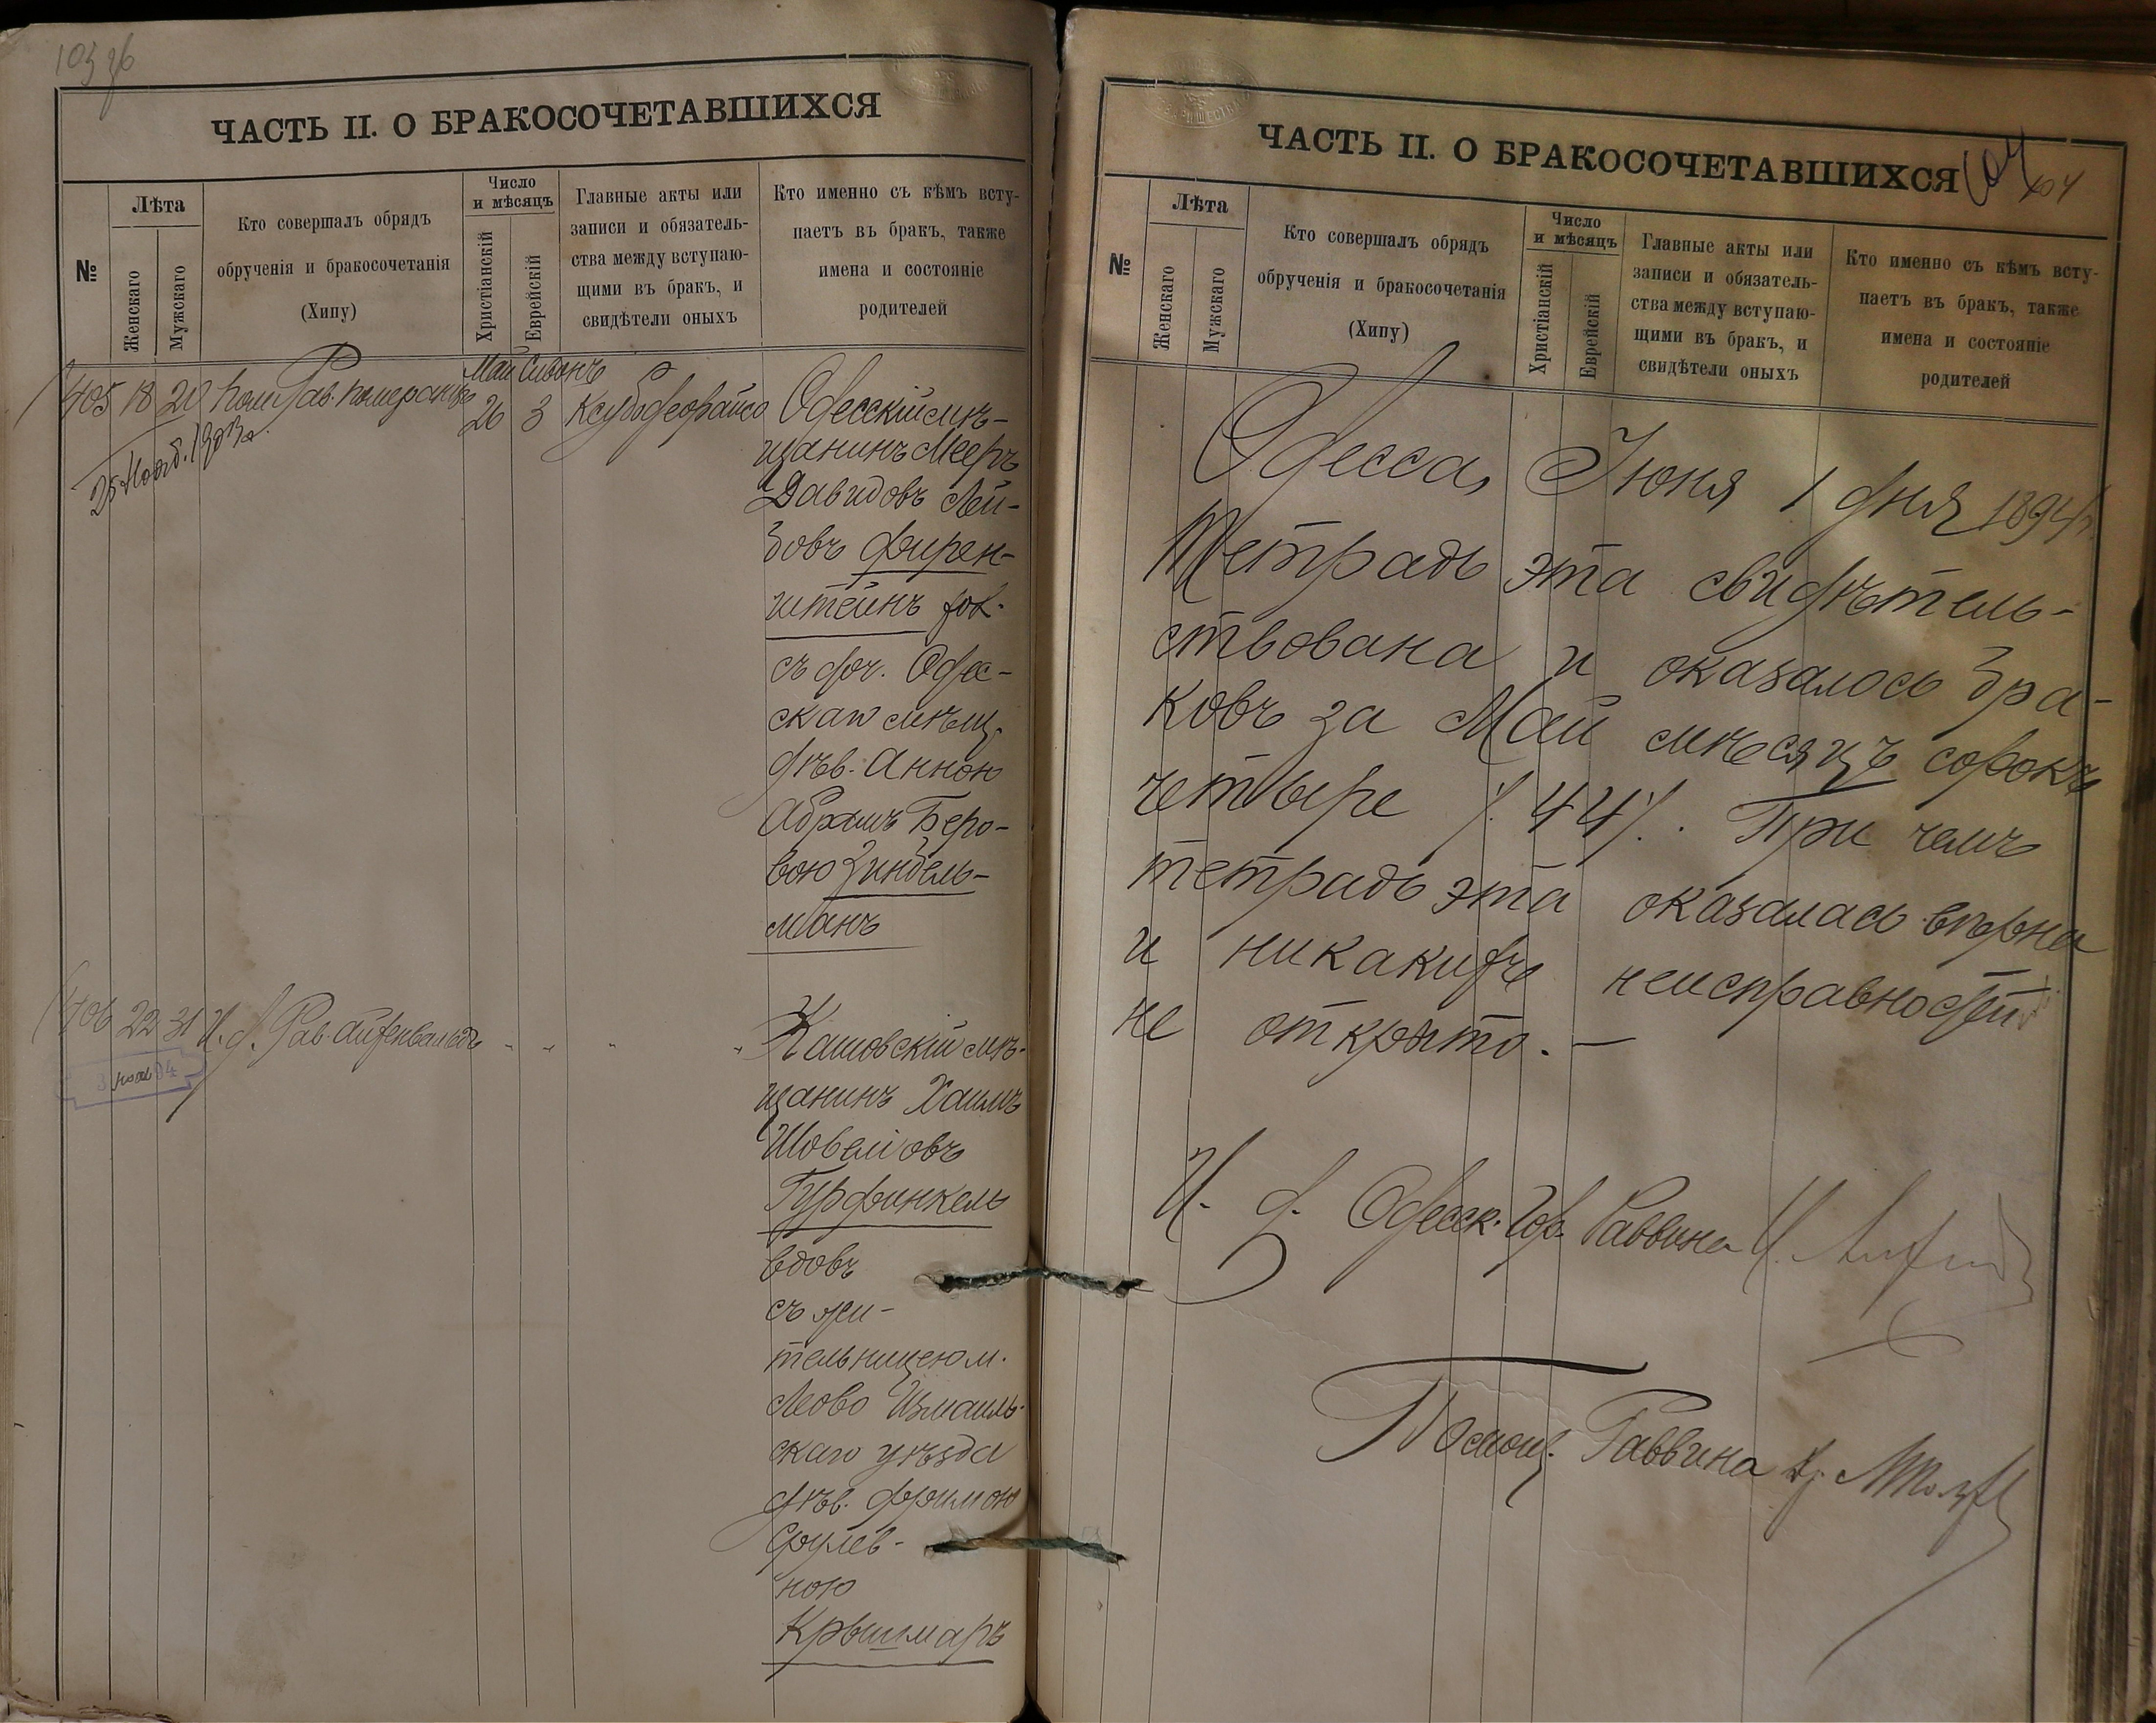 103 96
ЧАСТЬ II. О БРАКОСОЧЕТАВШИХСЯ
№
Лѣта
Женскаго
Мужскаго
Кто совершалъ обрядъ
обрученія и бракосочетанія
(Хипу)
Число
и мѣсяцъ
Христіанскій
Еврейскій
Главные акты или
записи и обязатель-
ства между вступаю-
щими въ бракъ, и
свидѣтели оныхъ
Кто именно съ кѣмъ всту-
паетъ въ бракъ, также
имена и состояніе
родителей
Май Сивонъ
405 18 20 Пом. Рав. Померанцъ 26 3 Ксуба деорайса
25 Нояб. 1903 г.
Одесскій мѣ-
щанинъ Мееръ
Давидовъ Лей-
бовъ Фирен-
штейнъ хол.
съ доч. Одес-
скаго мѣщ.
дѣв. Анною
Абрамъ Беро-
вою Зиндель-
манъ
406 22 31 И. д. Рав. Айзенвальдъ " " " "
94
Кашовскій мѣ-
щанинъ Хаимъ
Шовеліовъ
Гурфинкель
вдовъ
съ жи-
тельницею м.
Леово Измаиль-
скаго уѣзда
дѣв. Фримою
Срулев-
ною
Крышмаръ
ЧАСТЬ II. О БРАКОСОЧЕТАВШИХСЯ
104
104
№
Лѣта
Женскаго
Мужскаго
Кто совершалъ обрядъ
обрученія и бракосочетанія
(Хипу)
Число
и мѣсяцъ
Христіанскій
Еврейскій
Главные акты или
записи и обязатель-
ства между вступаю-
щими въ бракъ, и
свидѣтели оныхъ
Кто именно съ кѣмъ всту-
паетъ въ бракъ, также
имена и состояніе
родителей
Одесса, Іюня 1 дня 1894 г.
Тетрадь эта свидѣтель-
ствована и оказалось бра-
ковъ за Май мѣсяцъ сорокъ
четыре /. 44 /. При чемъ
тетрадь эта оказалась вѣрна
и никакихъ неисправностей
не открыто. —
И. д. Одесск. Гор. Раввина
Помощ. Раввина